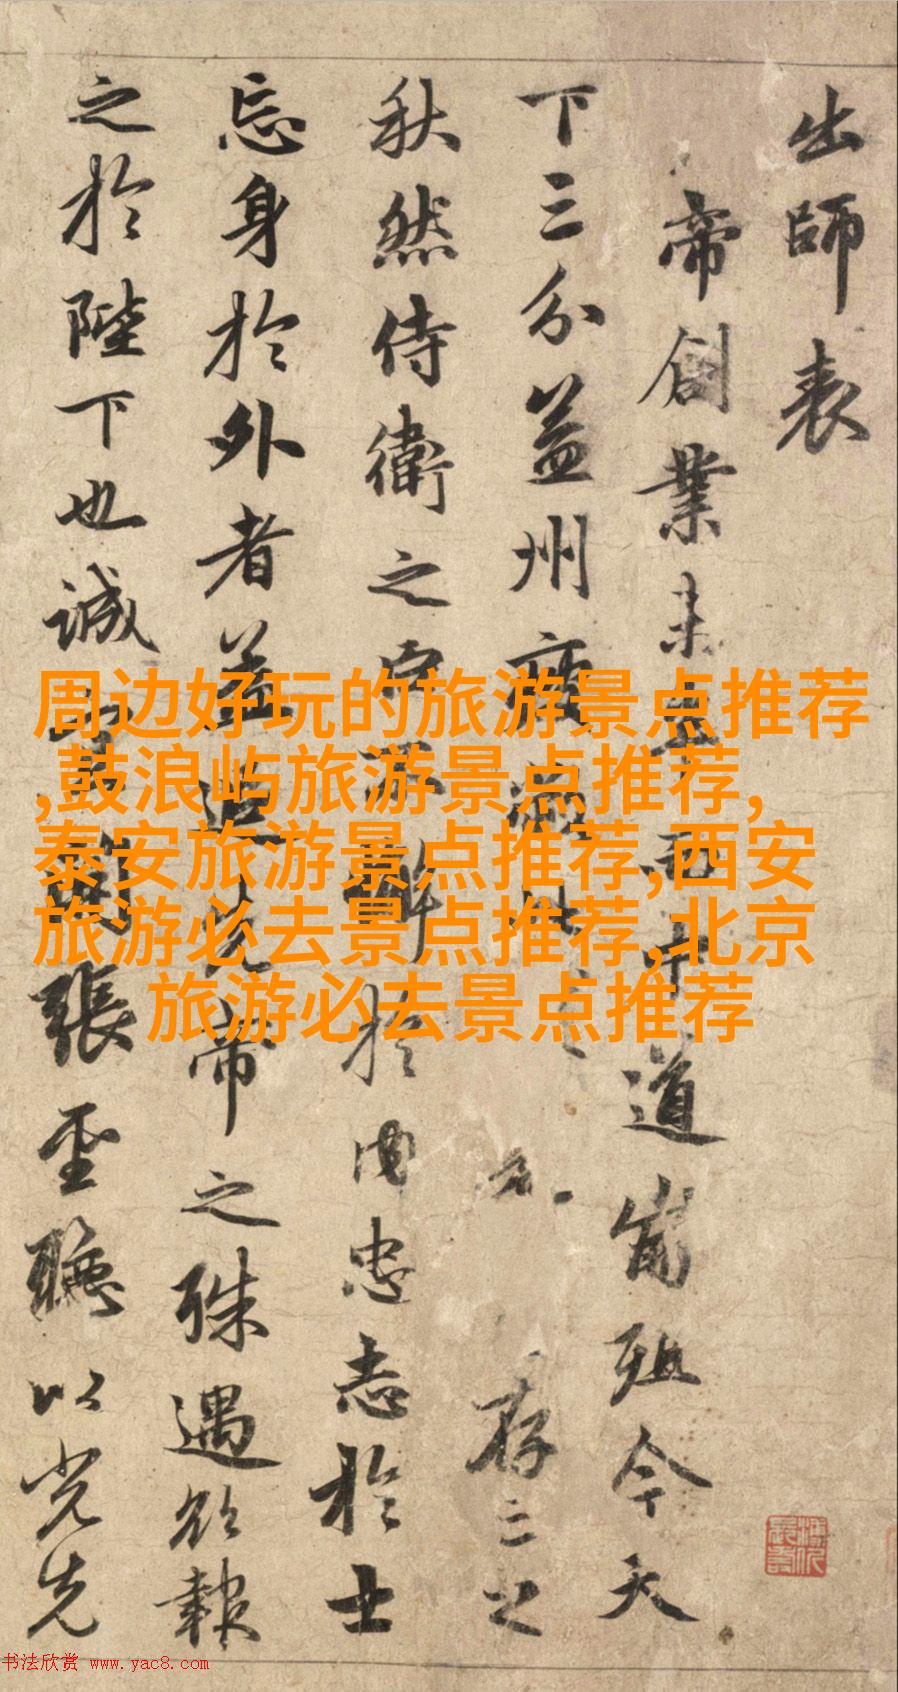 出師表
帝創業未而中道崩殂今天
下三分益州疲弊存之
秋然侍衛之臣不懈於內忠志於士
忘身於外者蓋追先帝之殊遇欲報
之於陛下也誠宜開張聖聽以光先
周边好玩的旅游景点推荐
,鼓浪屿旅游景点推荐,
泰安旅游景点推荐,西安
旅游必去景点推荐,北京
旅游必去景点推荐
书法欣赏 www.yac8.com